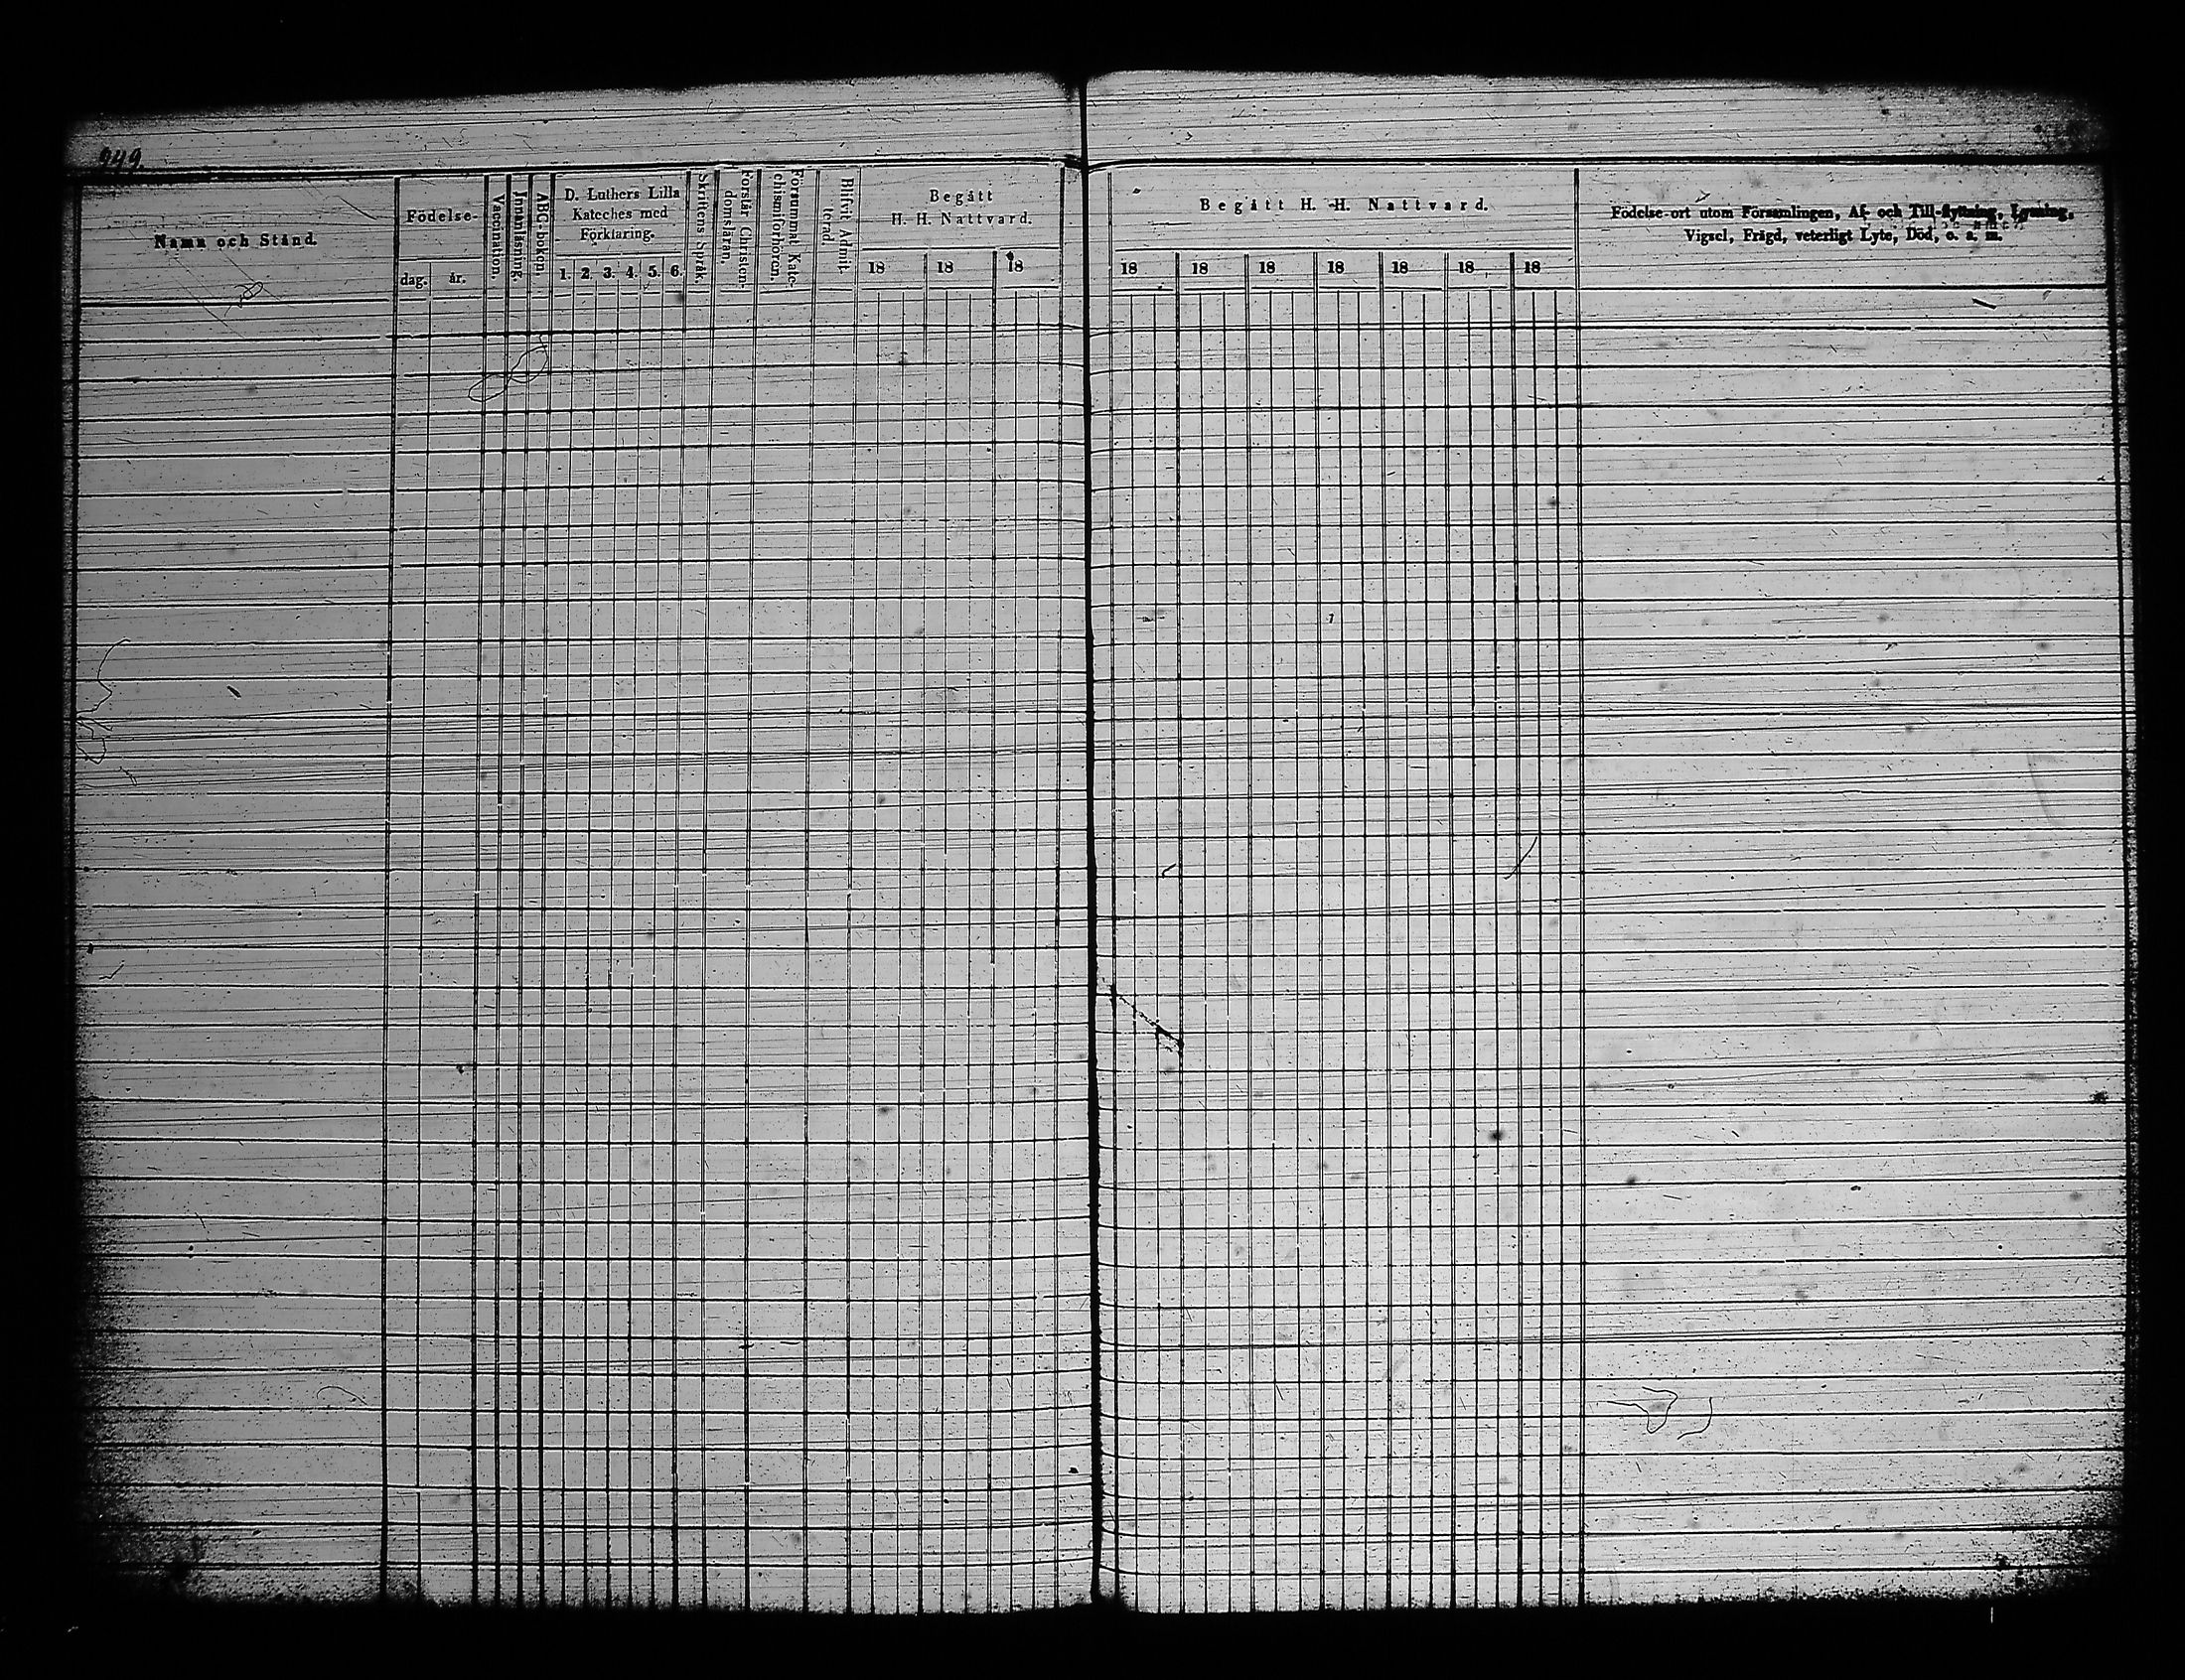 949.
Namn och Stånd.
Födelse-
dag.
år.
Vaccination.
Innanläsning.
ABC-boken.
D. Luthers Lilla
Kateches med
Förklaring.
1. 2. 3. 4. 5. 6.
Skriftens Språk.
Förstår Christen-
domsläran.
Försummat Kate-
chismiförhören.
Blifvit Admit-
terad.
Begått
H. H. Nattvard.
18 18 18
Begått H. H. Nattvard.
18 18 18 18 18 18 18
Födelse-ort utom Församlingen, Af- och Till-flyttning, Lysning,
Vigsel, Frägd, veterligt Lyte, Död, o. s. m.